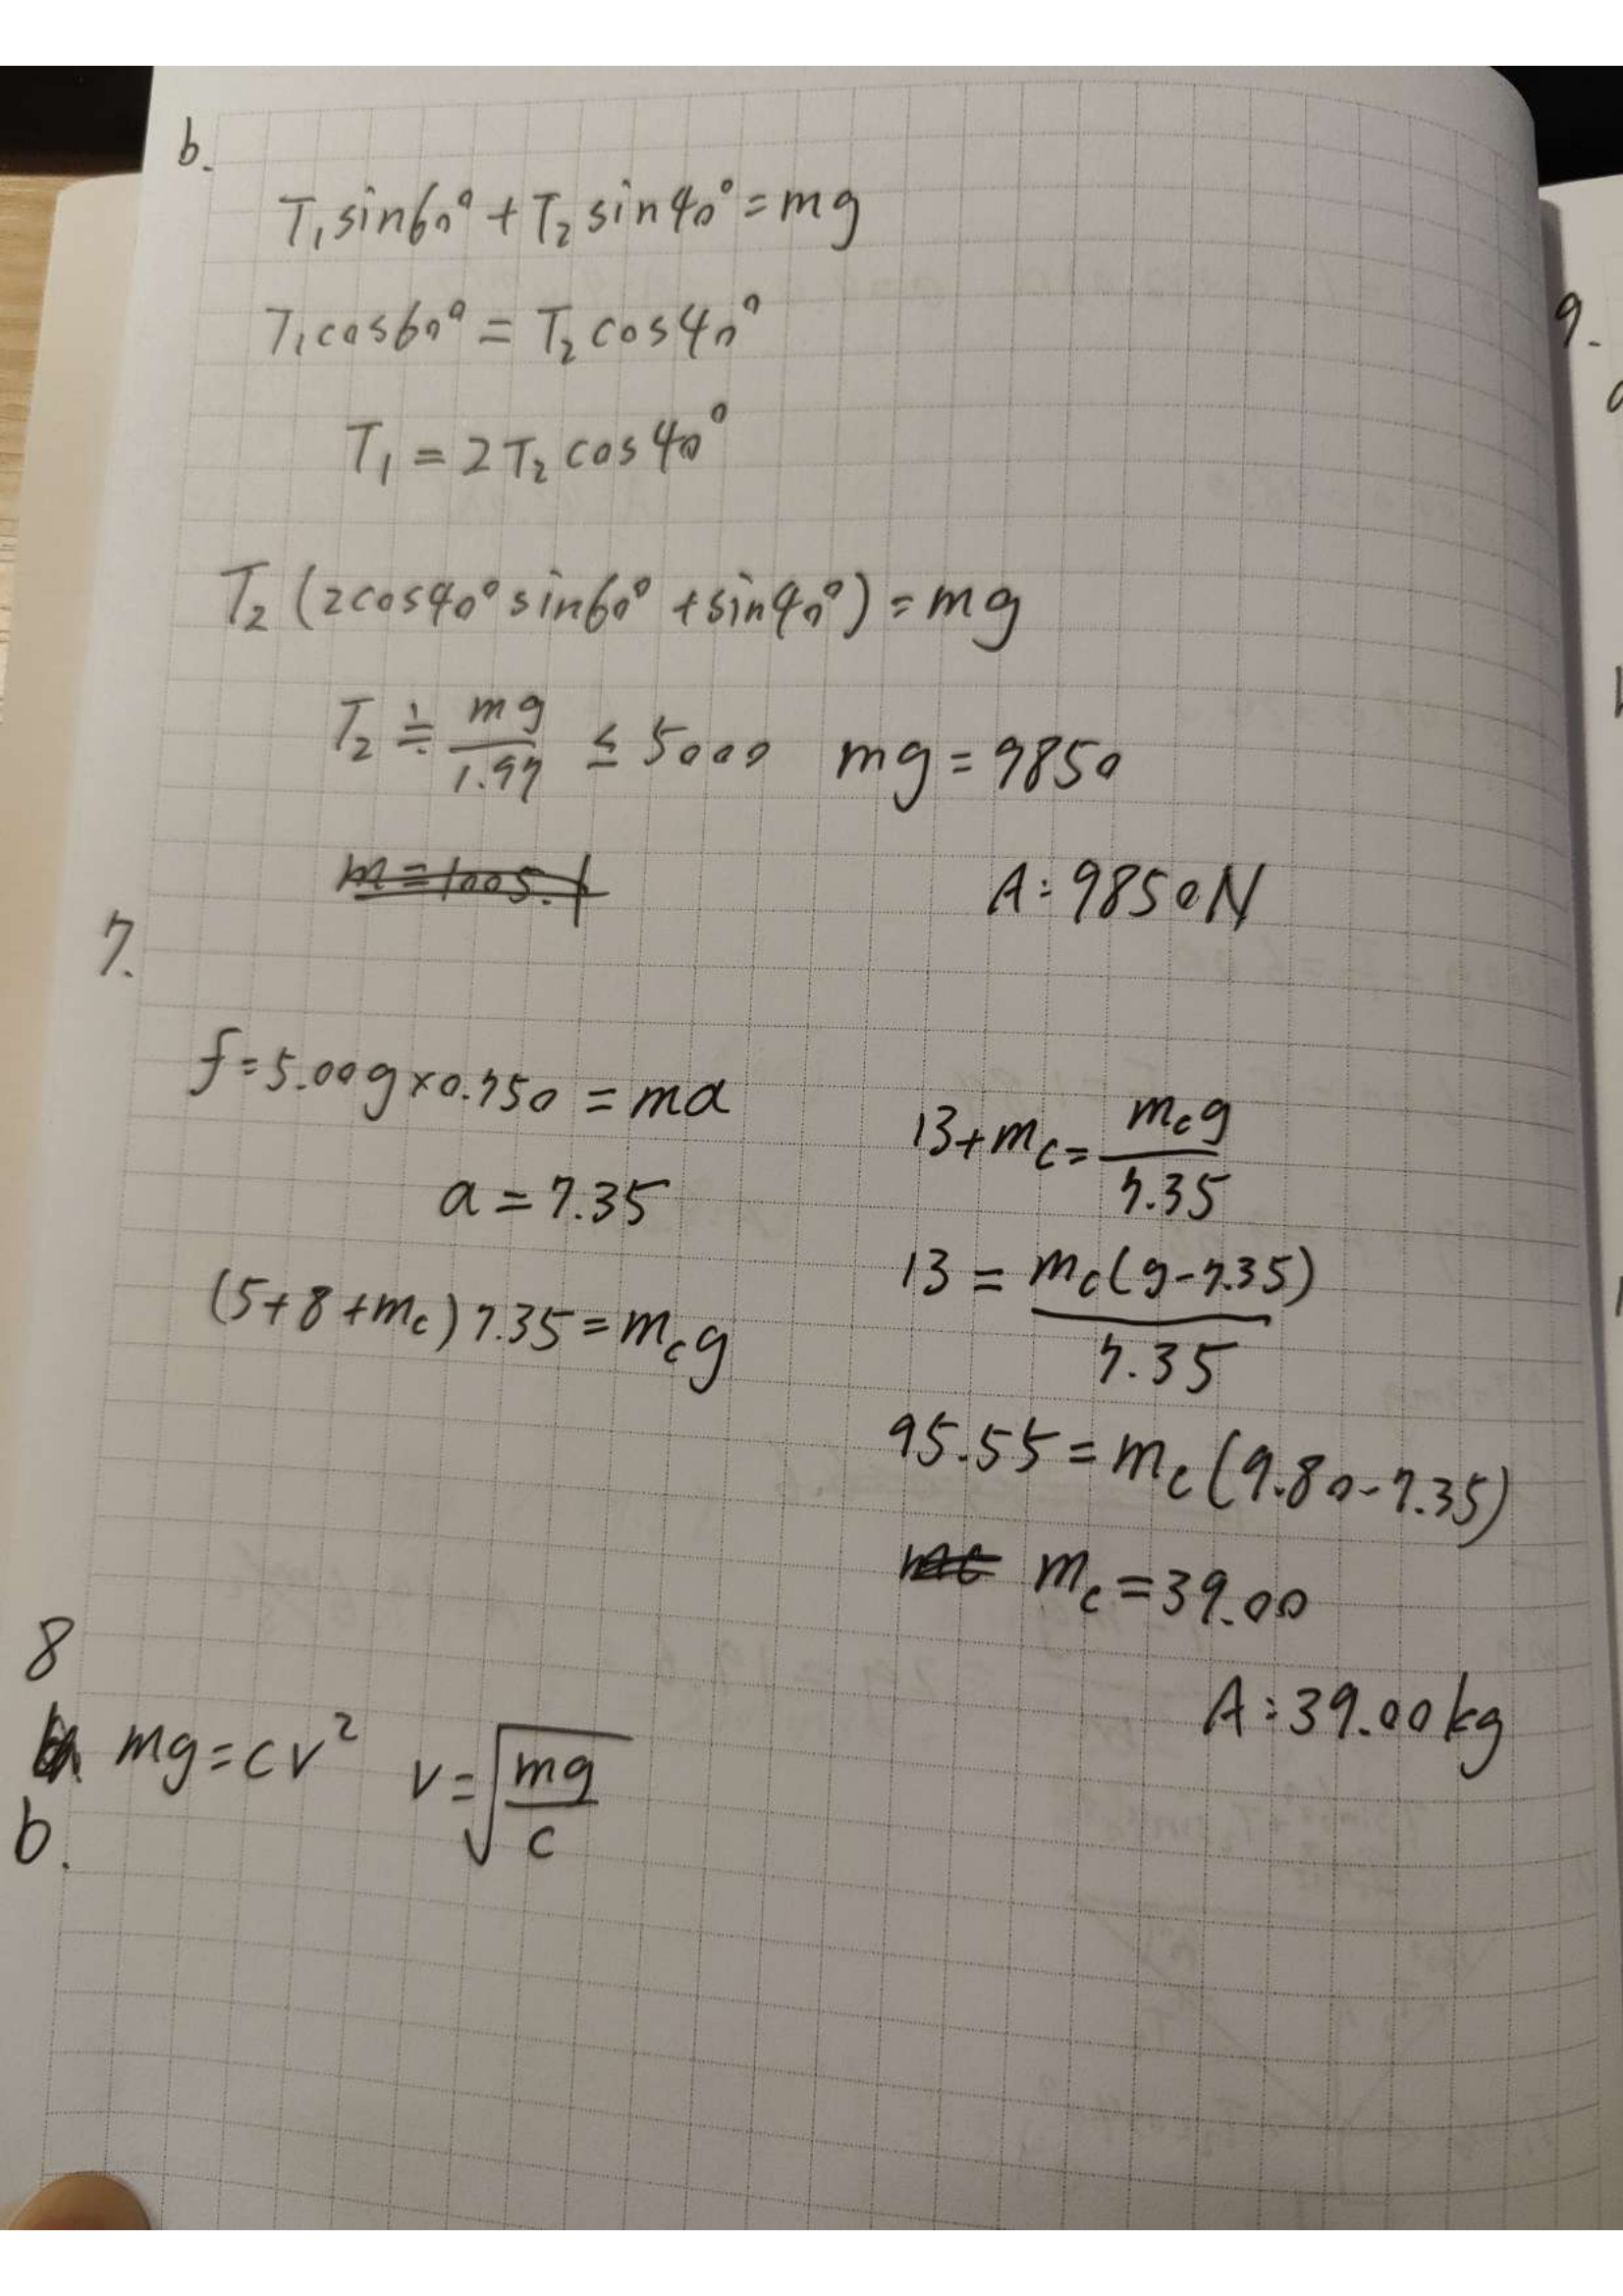 b.
T₁sin60° + T₂ sin40° = mg
T₁cos60° = T₂ cos40°
T₁ = 2T₂ cos40°
T₂ (2cos40° sin60° + sin40°) = mg
T₂ ≒ mg/1.97 ≤ 5000 mg = 9850
m = 1005.1
A: 9850N
7.
f = 5.00g × 0.750 = ma
a = 7.35
(5+8+mc) 7.35 = mcg
13 + mc = mcg/7.35
13 = mc(g-7.35)/7.35
95.55 = mc(9.80-7.35)
mc mc = 39.00
A: 39.00kg
8
mg = cv² v = √(mg/c)
b.
9.